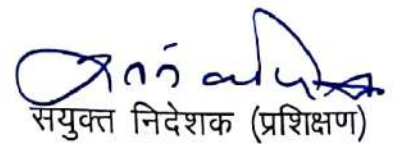 सयुक्त निदेशक (प्रशिक्षण)